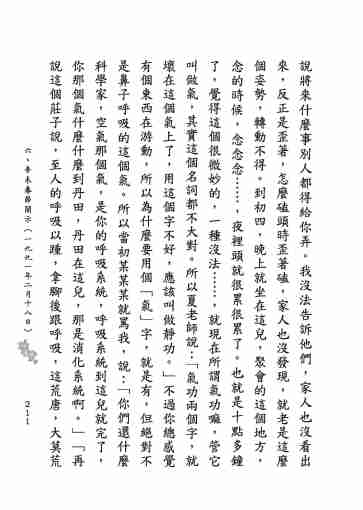 說將來什麼事別人都得給你弄。我沒法告訴他們，家人也沒看出
來，反正是歪著，怎麼磕頭時歪著磕。家人也沒發現，就老是這麼
個姿勢，轉動不得。到初四，晚上就坐在這兒，聚會的這個地方，
念的時候，念念念……，夜裡頭就很累很累了。也就是十點多鐘
了，覺得這個很微妙的，一種沒法……，就現在所謂氣功嘛，管它
叫做氣，其實這個名詞都不大對。所以夏老師說：「氣功兩個字，就
壞在這個氣上了，用這個字不好，應該叫做靜功。」不過你總感覺
有個東西在游動。所以為什麼要用個「氣」字，就是有，但絕對不
是鼻子呼吸的這個氣。所以當初某某某就罵我，說：「你們還什麼
科學家，空氣那個氣，是你的呼吸系統，呼吸系統到這兒就完了，
你那個氣什麼什麼到丹田，丹田在這兒，那是消化系統啊。」「再
說這個莊子說，至人的呼吸以踵，拿腳後跟呼吸，這荒唐，大莫荒
六 辛未春節開示（一九九一年二月十八日）
211